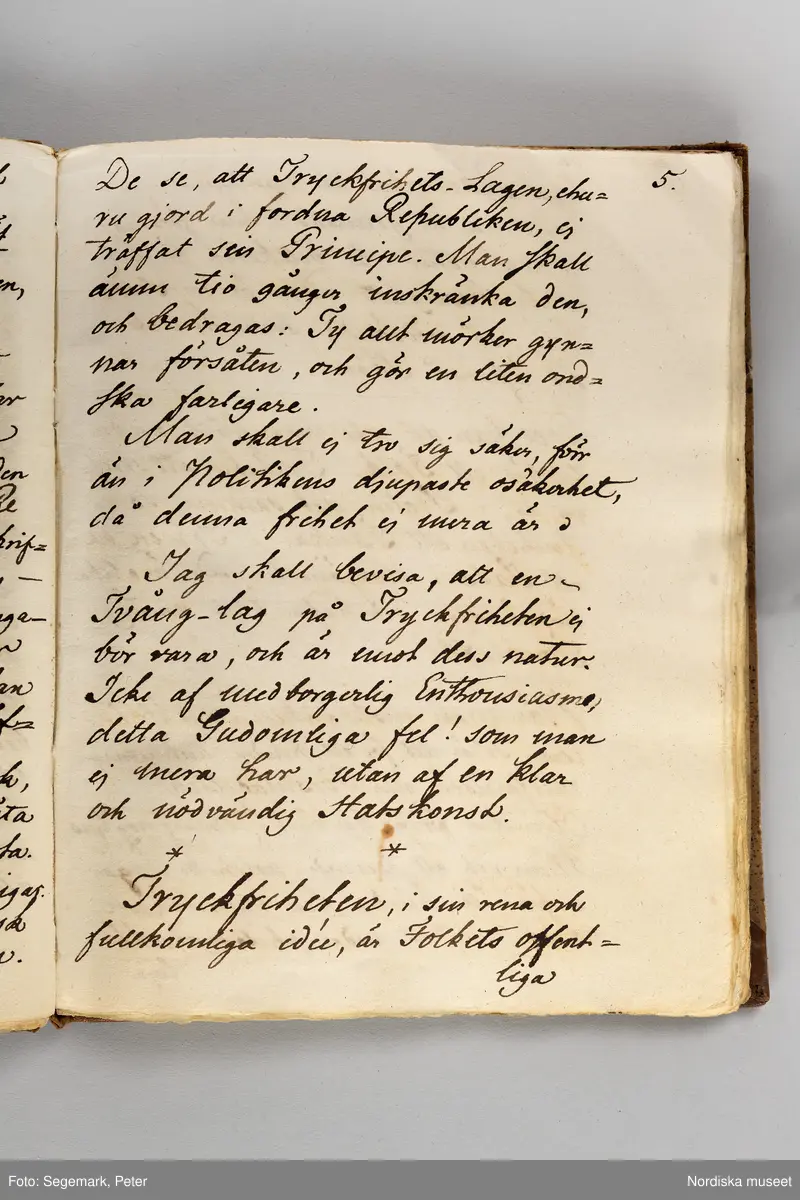 5.
De se, att Tryckfrihets-Lagen, ehu=
ru gjord i fordna Republiken, ej
träffat sin Principe. Man skall
ännu tio gånger inskränka den,
och bedragas: Ty allt mörker gyn=
nar försåten, och gör en liten ond=
ska farligare.
Man skall ej tro sig säker, förr
än i Politikens djupaste osäkerhet,
då denna frihet ej mera är
Jag skall bevisa, att en
Tvång-lag på Tryckfriheten ej
bör vara, och är emot dess natur.
Icke af medborgerlig Enthousiasme,
detta Gudomliga fel! som man
ej mera har, utan af en klar
och nödvändig Statskonst.
* *
Tryckfriheten, i sin rena och
fullkomliga idée, är Folkets offent=
liga
Foto: Segemark, Peter
Nordiska museet